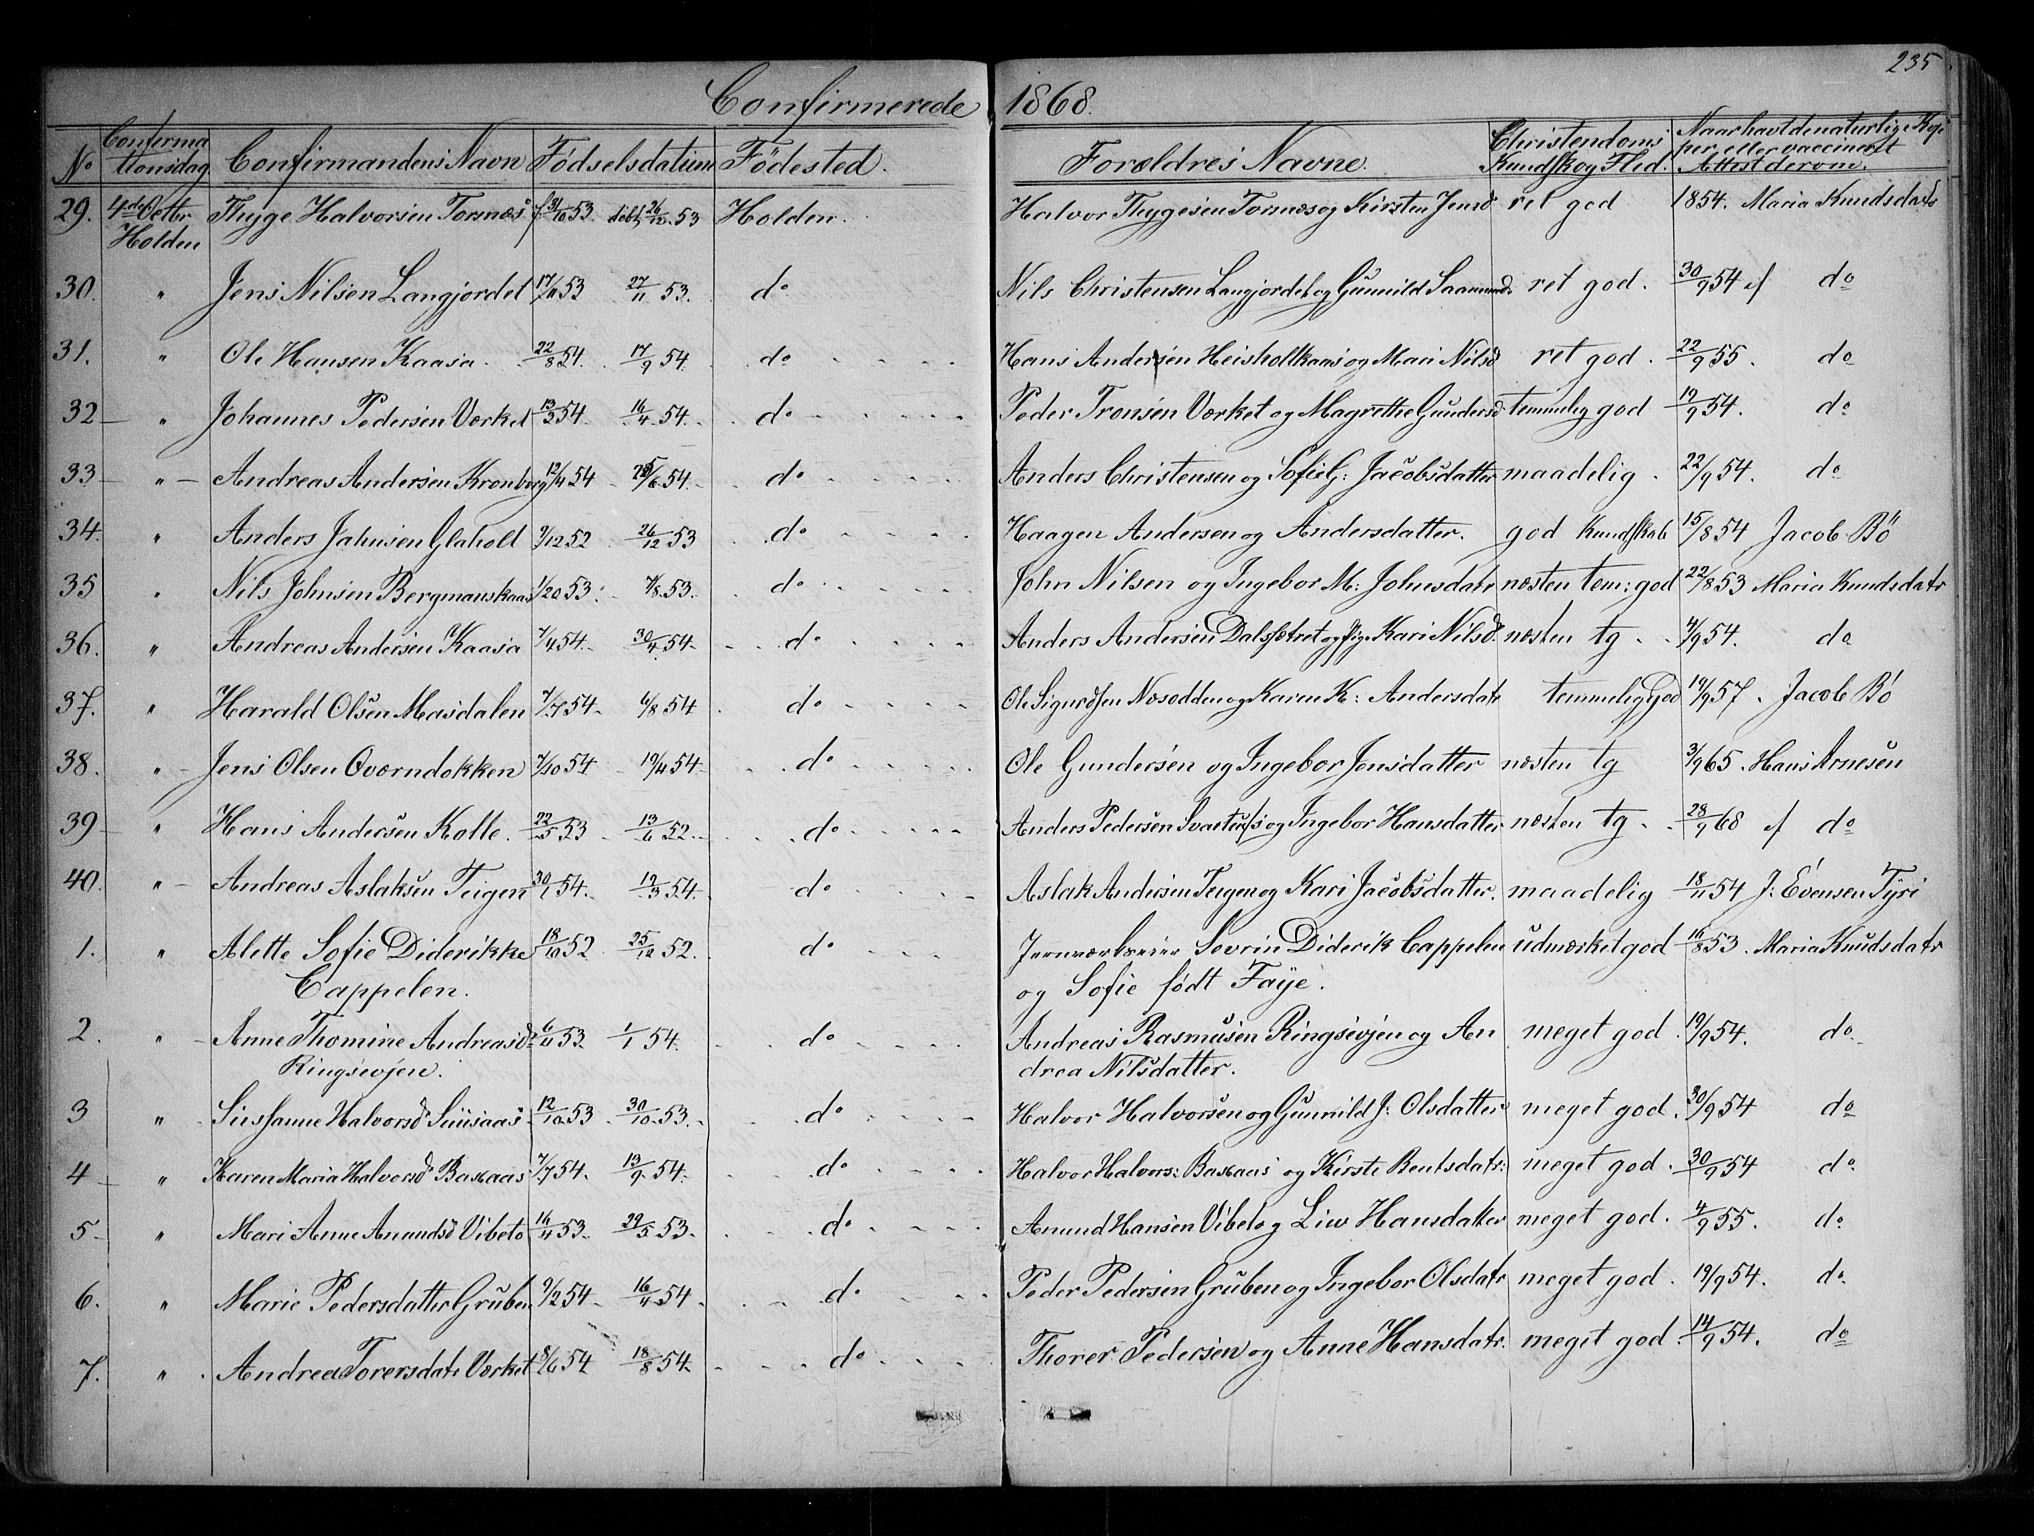 235
Confirmerede 1868.
No Confirmationsdag Confirmandens Navn Födselsdatum Födested. Forældres Navne. Christendoms Kundsk. og Flid. Naar havt de naturlige Kopper eller vaccineret Attest derom.
29. 4de Octbr Holden Thyge Halvorsen Tornæs f 31/10 53. döbt 26/12 53 Holden. Halvor Thygesen Tornæs og Kirsten Jensd ret god 1854. Maria Knudsdatr
30. " Jens Nilsen Langjordet 17/11 53 27/11 53. do Nils Christensen Langjordet og Gunnild Saamundsd ret god. 30/9 54 af do
31. " Ole Hansen Kaasa. 22/8 54. 17/9 54. do Hans Andersen Heisholtkaas og Mari Nilsd ret god. 22/9 55. do
32 " Johannes Pedersen Værket 13/3 54. 16/4 54. do Peder Tronsen Værket og Magrethe Gundersd temmelig god 19/9 54. do
33 " Andreas Andersen Kronborg 12/4 54 /6 54. do Anders Christensen og Sofie G: Jacobsdatter maadelig. 22/9 54. do
34. " Anders Jahnsen Glaholt 9/12 52 26/12 53 do Haagen Andersen og Andersdatter. god Kundskab 15/8 54 Jacob Bö
35 " Nils Johnsen Bergmanskaas 1/20 53. 7/8 53. do John Nilsen og Ingebor M: Johnsdatr næsten tem: god 22/8 53 Maria Knudsdatr
36. " Andreas Andersen Kaasa 7/4 54. 30/4 54. do Anders Andersen Dalssætret og Pige Kari Nilsd. næsten tg. 4/9 54. do
37. " Harald Olsen Masdalen 7/7 54. 6/8 54 do Ole Sigurdsen Næsodden og Karen K: Andersdatr temmelig god 19/9 57. Jacob Bö
38. " Jens Olsen Overndokken 7/10 54 19/4 54. do Ole Gundersen og Ingebor Jensdatter næsten tg 3/9 65. Hans Arnesen
39 " Hans Andersen Kolte. 22/5 53 13/6 52. do Anders Pedersen og Ingebor Hansdatter næsten tg. 28/9 68 af do
40. " Andreas Aslaksen Teigen 30/1 54. 19/3 54. do Aslak Andersen Teigen og Kari Jacobsdatter. maadelig 18/11 54 J: Evensen Tyri
1. " Alette Sofie Diderikke 18/10 52 25/12 52. do Jernværkseier Sevrin Diderik Cappelen udmærket god 16/8 53. Maria Knudsdatr
Cappelen. og Sofie født Faÿe.
2. " Anne Thomine Andreasd 6/11 53. 1/1 54. do Andreas Rasmusen Ringsevjen og An meget god. 19/9 54. do
Ringsevjen. drea Nilsdatter.
3 " Sussanne Halvorsd Suusaas 12/10 53 30/10 53. do Halvor Halvorsen og Gunnild J: Olsdatter meget god. 30/9 54 do
4 " Karen Maria Halvorsd Baxaas 7/7 54. 13/9 54. do Halvor Halvors: Baxaas og Kirsti Bentsdatr: meget god. 30/9 54 do
5 " Mari Anne Amundsd Vibeto 16/4 53. 29/5 53. do Amund Hansen Vibeto og Liw Hansdatter meget god. 4/9 55. do
6. " Marie Pedersdatter Gruben 9/2 54. 16/4 54. do Peder Pedersen Gruben og Ingebor Olsdatr meget god. 19/9 54. do
7. " Andrea Torersdatr Værket 8/6 54 18/8 54. do Thorer Pedersen og Anne Hansdatr. meget god. 14/9 54. do